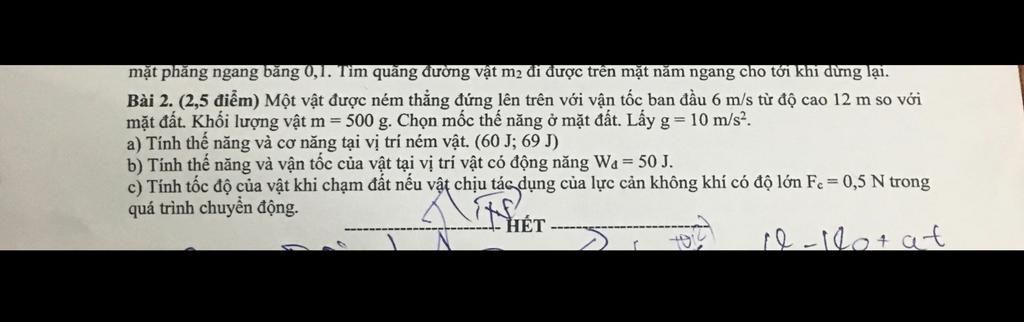 mặt phẳng ngang bằng 0,1. Tìm quãng đường vật m₂ đi được trên mặt nằm ngang cho tới khi dừng lại.
Bài 2. (2,5 điểm) Một vật được ném thẳng đứng lên trên với vận tốc ban đầu 6 m/s từ độ cao 12 m so với
mặt đất. Khối lượng vật m = 500 g. Chọn mốc thế năng ở mặt đất. Lấy g = 10 m/s².
a) Tính thế năng và cơ năng tại vị trí ném vật. (60 J; 69 J)
b) Tính thế năng và vận tốc của vật tại vị trí vật có động năng Wđ = 50 J.
c) Tính tốc độ của vật khi chạm đất nếu vật chịu tác dụng của lực cản không khí có độ lớn Fc = 0,5 N trong
quá trình chuyển động.
HẾT